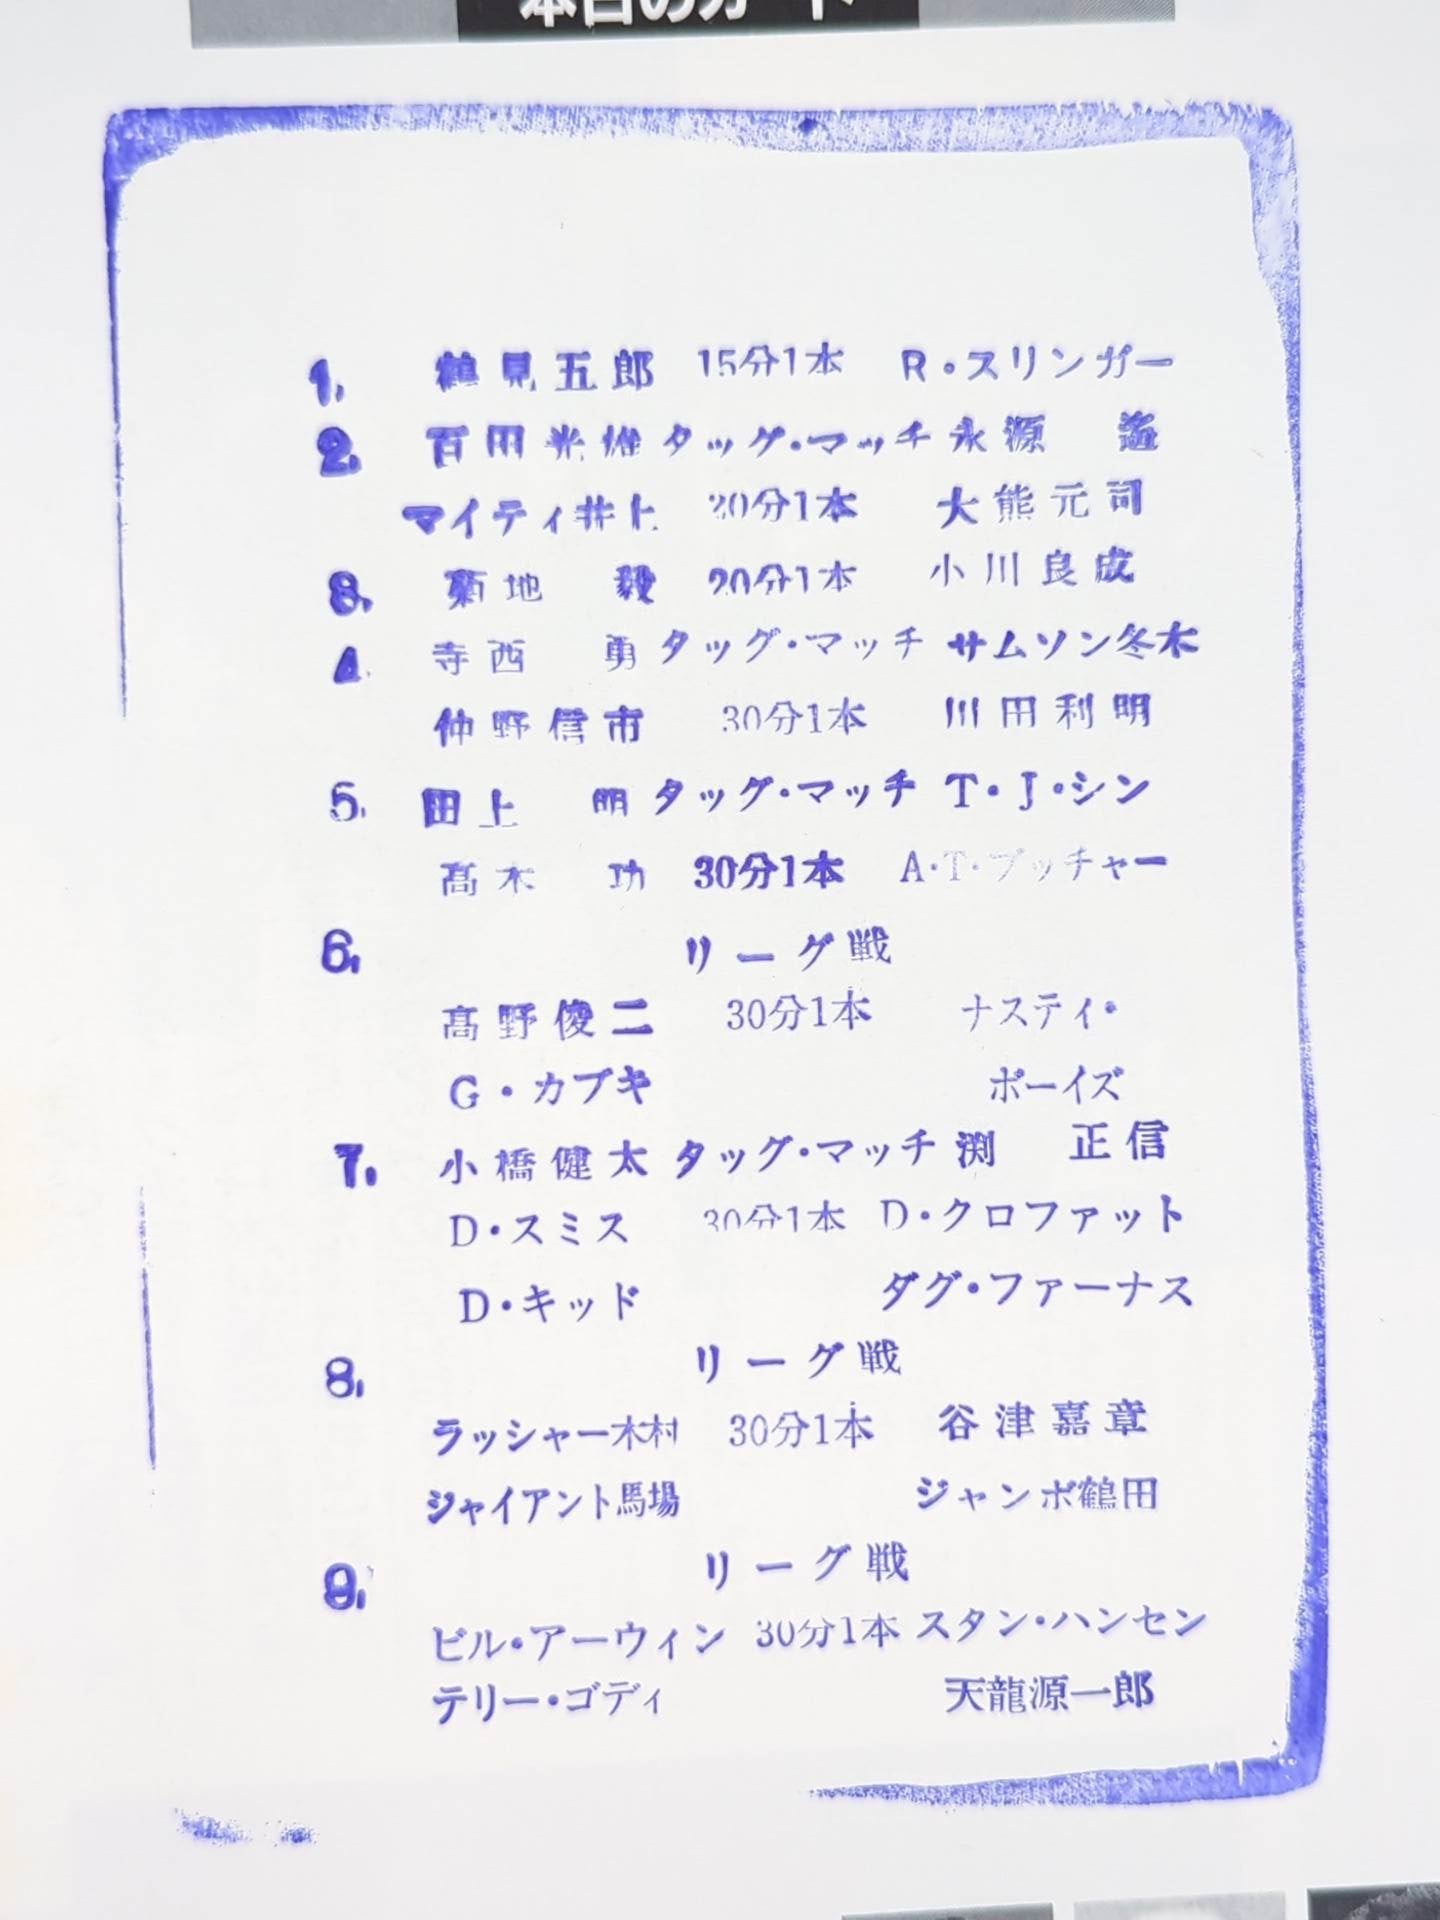 本日のカード
1. 鶴見五郎 15分1本 R・スリンガー
2. 百田光雄 タッグ・マッチ 永源 遙
マイティ井上 20分1本 大熊元司
3. 菊地 毅 20分1本 小川良成
4. 寺西 勇 タッグ・マッチ サムソン冬木
仲野信市 30分1本 川田利明
5. 田上 明 タッグ・マッチ T・J・シン
高木 功 30分1本 A・T・ブッチャー
6. リーグ戦
高野俊二 30分1本 ナスティ・
G・カブキ ボーイズ
7. 小橋健太 タッグ・マッチ 渕 正信
D・スミス 30分1本 D・クロファット
D・キッド ダグ・ファーナス
8. リーグ戦
ラッシャー木村 30分1本 谷津嘉章
ジャイアント馬場 ジャンボ鶴田
9. リーグ戦
ビル・アーウィン 30分1本 スタン・ハンセン
テリー・ゴディ 天龍源一郎